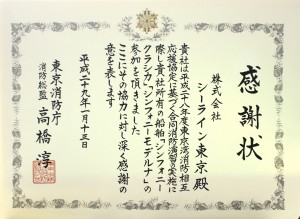 感謝状
株式会社
シーライン東京 殿
貴社は平成二十八年度東京湾消防相互
応援協定に基づく合同消防演習の実施に
際し貴社所有の船舶「シンフォニー
クラシカ」「シンフォニーモデルナ」の
参加を頂きました
ここにその協力に対し深く感謝の
意を表します
平成二十九年一月十三日
東京消防庁
消防総監 高橋 淳